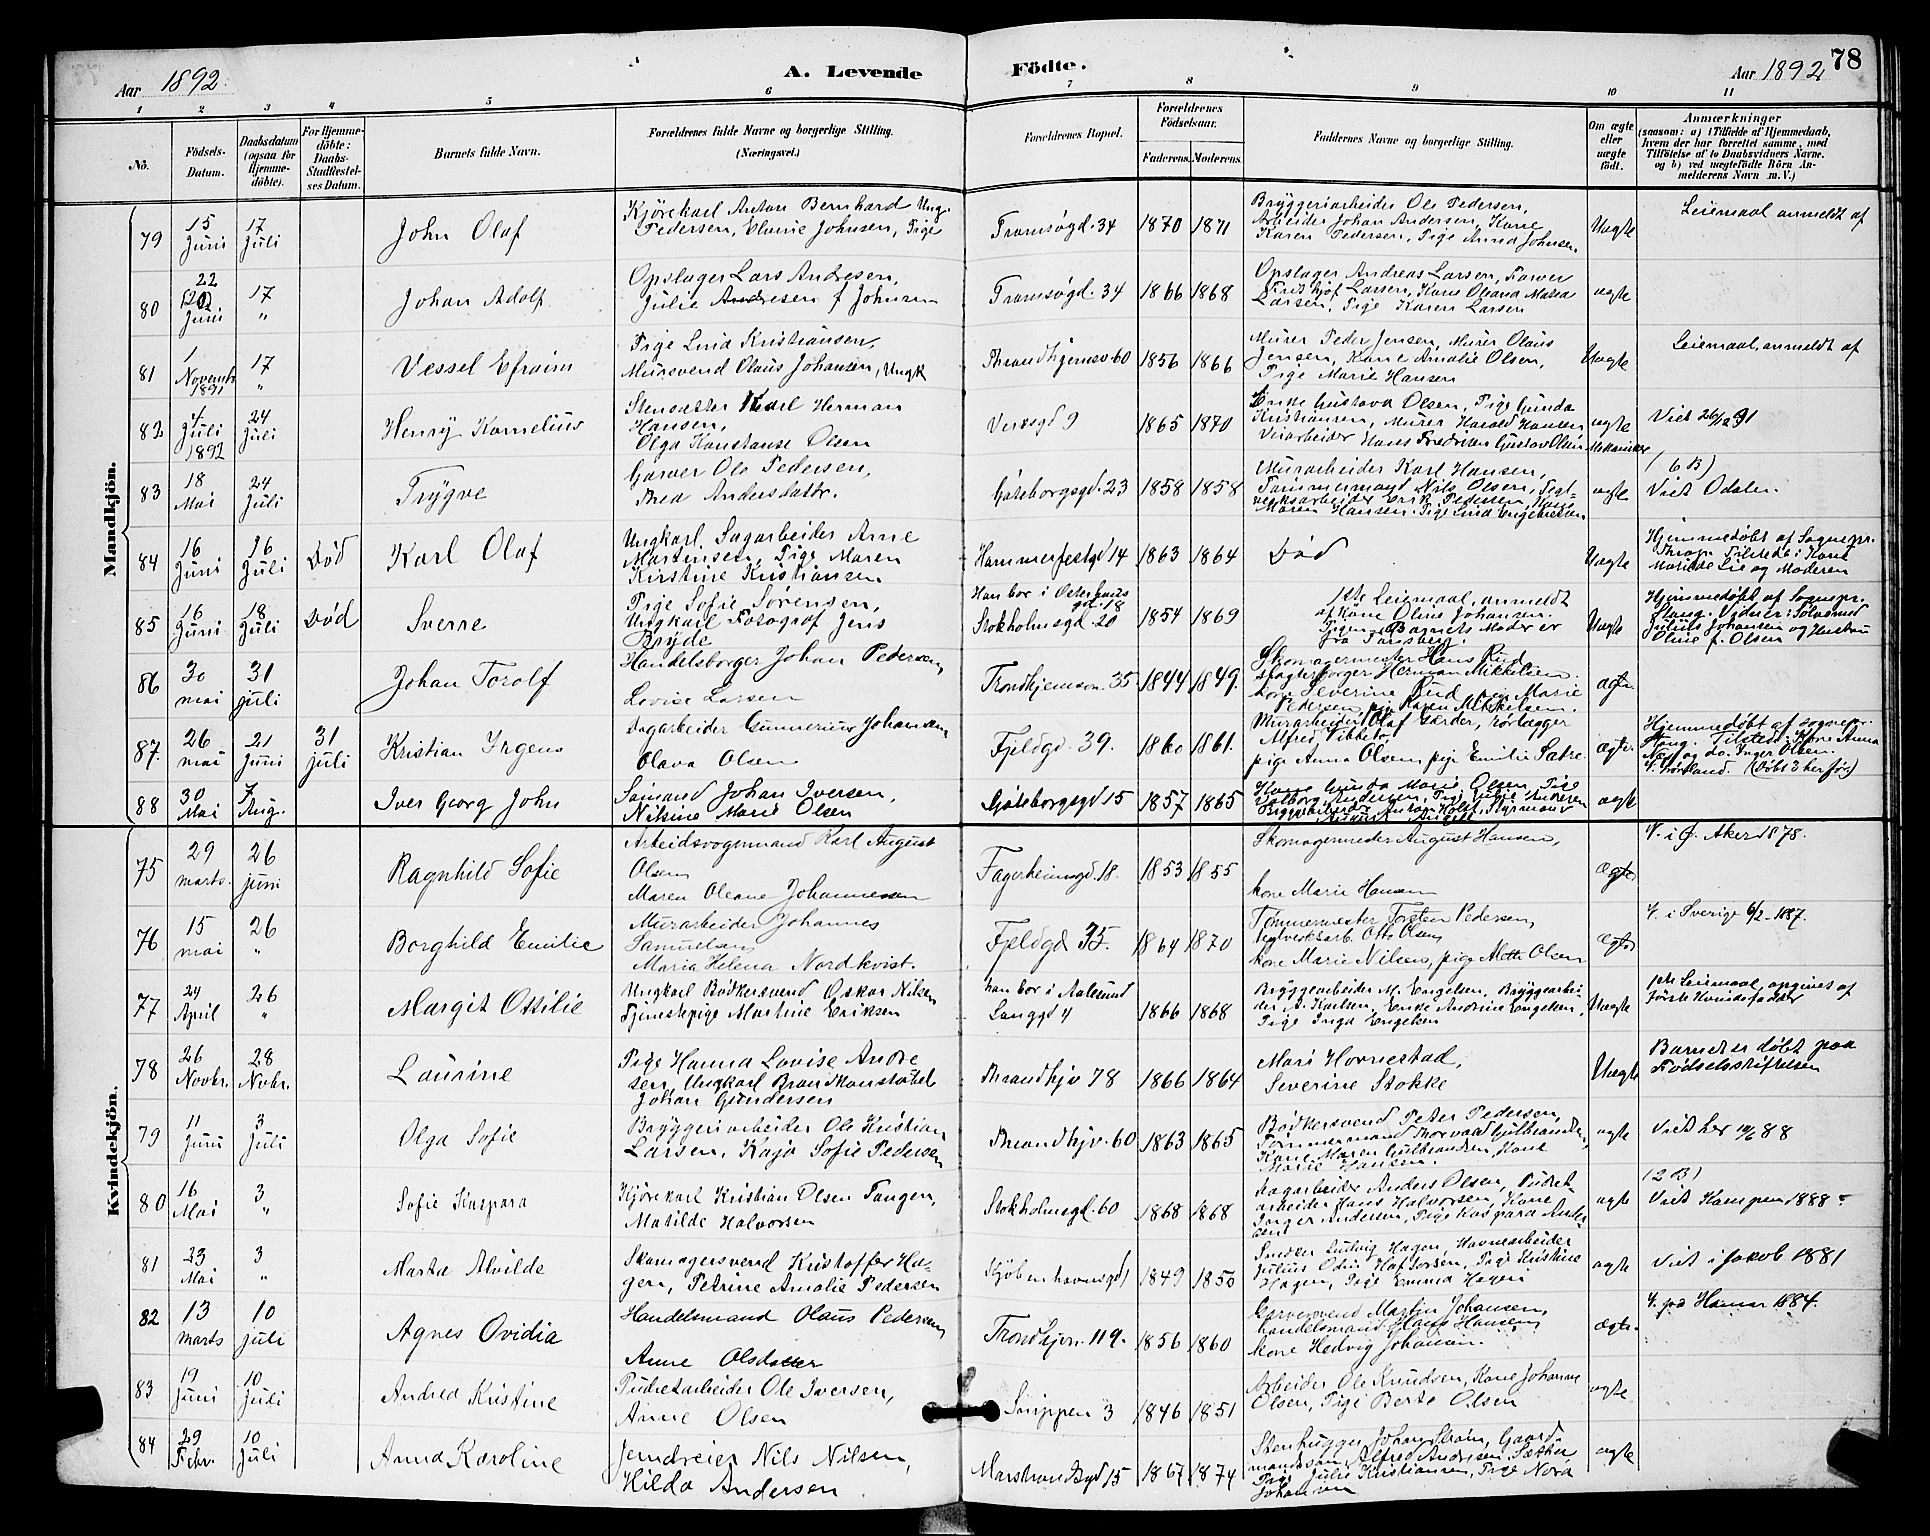 Aar 1892.
A. Levende Födte.
Aar 1892
78
1 2 3 4 5 6 7 8 9 10 11
Nô.
Födsels-Datum.
Daabsdatum (ogsaa for Hjemme-döbte).
For Hjemme-döbte: Daabs-Stadfæstel-ses Datum.
Barnets fulde Navn.
Forældrenes fulde Navne og borgerlige Stilling. (Næringsvei.)
Forældrenes Bopæl.
Forældrenes Födselsaar.
Faderens. Moderens.
Faddernes Navne og borgerlige Stilling.
Om ægte eller uægte født.
Anmærkninger
(saasom: a) i Tilfælde af Hjemmedaab, hvem der har forrettet samme, med Tilföielse af to Daabsvidners Navne. og b) ved uægtefödte Börn An-melderens Navn m. V.)
Mandkjön.
79 15 Juni 17 Juli John Olaf
Kjörekarl Anton Bernhard Ungk.
Pedersen, Johnsen, Pige
Tromsögd. 34 1870 1871
Bryggeriarbeider Ole Pedersen,
Arbeider Johan Andersen, Kone
Karen Pedersen, Pige Anna Johnsen
Uægte
Leiemaal anmeldt af
80 22 Juni 17 " Johan Adolf
Opslager Lars Andresen,
Julie Andresen f Johnsen
Tromsögd. 34 1866 1868
Opslager Andreas Larsen, Farver
Fridthjof Larsen, Kone Oleana Maria
Larsen, Pige Karen Larsen
ægte
81 1 Novembr 1891 17 " Vessel Efraim
Pige Lina Kristiansen,
Mursvend Olaus Johansen, Ungk
Thrandhjemsv 60 1856 1866
Murer Peder Jensen, Murer Olaus
Jensen, Kone Amalie Olsen,
Pige Marie Hansen
Uægte
Leiemaal anmeldt af
82 4 Juli 1892 24 Juli Henry Kornelius
Stensætter Karl Herman
Hansen,
Olga Konstanse Olsen
Verksgd 9 1865 1870
Enke Gustava Olsen, Pige Gunda
Kristiansen, Murer Harald Hansen
Hans Fredriksen Gustav Olsen Mekaniker
ægte
Viet 26/12 91
83 18 Mai 24 Juli Trygve
Garver Ole Pedersen,
Thea Andersdattr.
Göteborgsgd. 23 1858 1858
Murarbeider Karl Hansen,
Tømmermand Nils Olsen, Tegl-
verksarbeider Erik Pedersen, Kone
Maren Hansen, Pige Lina Engebretsen
ægte
(6 B)
Viet Odalen.
84 16 Juni 16 Juli Död Karl Olaf
Ungkarl Sagarbeider Arne
Martinsen, Pige Maren
Kirstine Kristiansen
Hammerfestgd 14 1863 1864
Död
Uægte
Hjemmedøbt af Sognepr.
Thrap. Tilstede: Kone
Matilde Lie og Moderen
85 16 Juni 18 Juli Död Sverre
Pige Sofie Sørensen,
Ungkarl Fotograf Jens
Bryde
Han bor i Osterhausgd. 18
Stokholmsgd. 20 1854 1869
1ste Leiemaal, anmeldt
af Kone Oline Johansen
Barnets Moder er
fra Tønsberg.
Uægte
Hjemmedøbt af Sognepr.
Stang. Vidner:
Julius Johansen og Hustru
Oline f. Olsen
86 30 mai 31 juli Johan Torolf
Handelsborger Johan Pedersen
Lovise Larsen
Trondhjemsv. 35 1844 1849.
Skomagermester Hans Rud
slagterborger Herman Mikkelsen
kone Severine Rud, pige Marie
Pedersen, pige Karen Mikkelsen.
ægte
87. 26 mai 21 Juni 31 juli Kristian Jrgens
Dagarbeider Gunnerius Johansen
Olava Olsen
Fjeldgd. 39. 1860 1861.
Murarbeider Olaf Gærder, rörlægger
Alfred
pige Anna Olsen, pige Emilie Sætre
ægte
Hjemmedøbt af sognepr.
Stang. Tilstede: Kone Anna
Næss og do. Inger Olsen.
(Døbt 3 her før)
88 30 Mai 7 Aug. Iver Georg John
Sømand Johan Iversen,
Nilsine Marie Olsen
Göteborgsgd 15 1857 1865
Kone Gunda Marie Olsen, Pige
Valborg Andersen, Pige Julie Andersen
Holst, Styrmand
ægte
Kvindekjön.
75 29 marts. 26 juni Ragnhild Sofie
Arbeidsvognmand Karl August
Olsen
Maren Oleane Johannessen
Fagerheimsgd. 18. 1853 1855
Skomagermester August Hansen,
kone Marie Hansen
Ægte
V. i Ø. Aker 1878.
76 15 mai 26 " Borghild Emilie
Murarbeider Johannes
Samuelsen
Maria Helena Nordkvist.
Fjeldgd 35. 1864 1870
Tömmermester Torsten Pedersen,
teglverksarb. Otto Olsen
kone Marie Nilsen, pige Mette Olsen
ægte
V. i Sverige 6/2-1887.
77 24 April 26 " Margit Ottilie
Ungkarl Bödkersvend Oskar Nilsen
Tjenestepige Martine Eriksen
han bor i Aalesund
Langgd 11 1866 1868
Bryggearbeider M. Engelsen, Bryggearbei-
der A. Karlsen, Enke Andrine Engelsen,
Pige Inga Engelsen
Uægte
1ste Leiemaal, opgives af
første Kvindefadder
78 26 Novbr. 28 Novbr. Laurine
Pige Hanna Lovise Andre
sen, Ungkarl Brandkonstabel
Johan Gundersen
Thrandhjv 78 1866 1864
Mari Hornestad,
Severine Stokke
Uægte
Barnet er døbt paa
Födselsstiftelsen
79 11 Juni 3 Juli Olga Sofie
Bryggeriarbeider Ole Kristian
Larsen, Kaja Sofie Pedersen
Thrandhjv. 60 1863 1865
Bödkersvend Peter Pedersen,
Tømmermand Thorvald Gulbrandsen,
Kone Maren Gulbrandsen, Kone
Marie Hansen.
ægte
Viet her 10/6 88
80 16 Mai 3 " Sofie Kaspara
Kjörekarl Kristian Olsen Tangen,
Matilde Halvorsen
Stokholmsgd. 60 1868 1868
Dagarbeider Anders Olsen, Pudret-
arbeider Hans Halvorsen, Kone
Inger Andersen, Pige Kaspara Ander-
sen
ægte
(2 B)
Viet Kampen 1888
81 23 Mai 3 " Marta Alvilde
Skomagersvend Kristoffer Ha-
gen, Petrine Amalie Pedersen
Kjöbenhavnsgd 1 1849 1850
Snedker Ludvig Hagen, Havnearbeider
Julius Odin Hafdorsen, Pige Kristine
Hagen, Pige Emma Hagen
ægte
Viet i Jakob 1881
82 13 marts 10 juli Agnes Ovidia
Handelsmand Olaus Pedersen
Anne Olsdatter
Trondhjem. 119. 1856 1860
Garversvend Martin Johansen,
handelsmand Hans Hansen,
kone Hedvig Johansen.
ægte.
V. paa Hamar 1884.
83 19 Juni 10 Juli Andrea Kristine
Pudretarbeider Ole Iversen,
Anne Olsen
Snippen 3 1846 1851
Arbeider Ole Knudsen, Kone Johanne
Olsen, Pige Berte Olsen
ægte
84 29 Febr. 10 Juli Anna Karoline
Jerndreier Nils Nilsen,
Hilda Andersen
Marstrandgd 15 1867 1874
Stenhugger Johan Strøm, Gaard-
mandssøn Alfred Andresen Sæther
Pige Julie Kristiansen, Pige Nora
Johansen
ægte